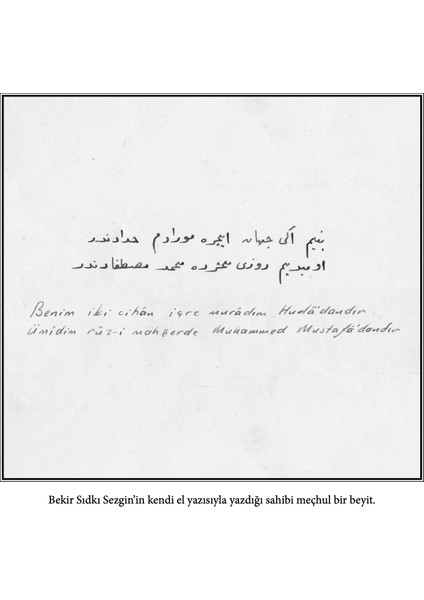 بنیم اکی جهان ایچره مورادم خدادندر
اومیدیم روزی محشرده محمد مصطفادندر
Benim iki cihân içre murâdım Hudâ'dandır
Ümîdim rûz-i mahşerde Muhammed Mustafâ'dandır
Bekir Sıdkı Sezgin'in kendi el yazısıyla yazdığı sahibi meçhul bir beyit.